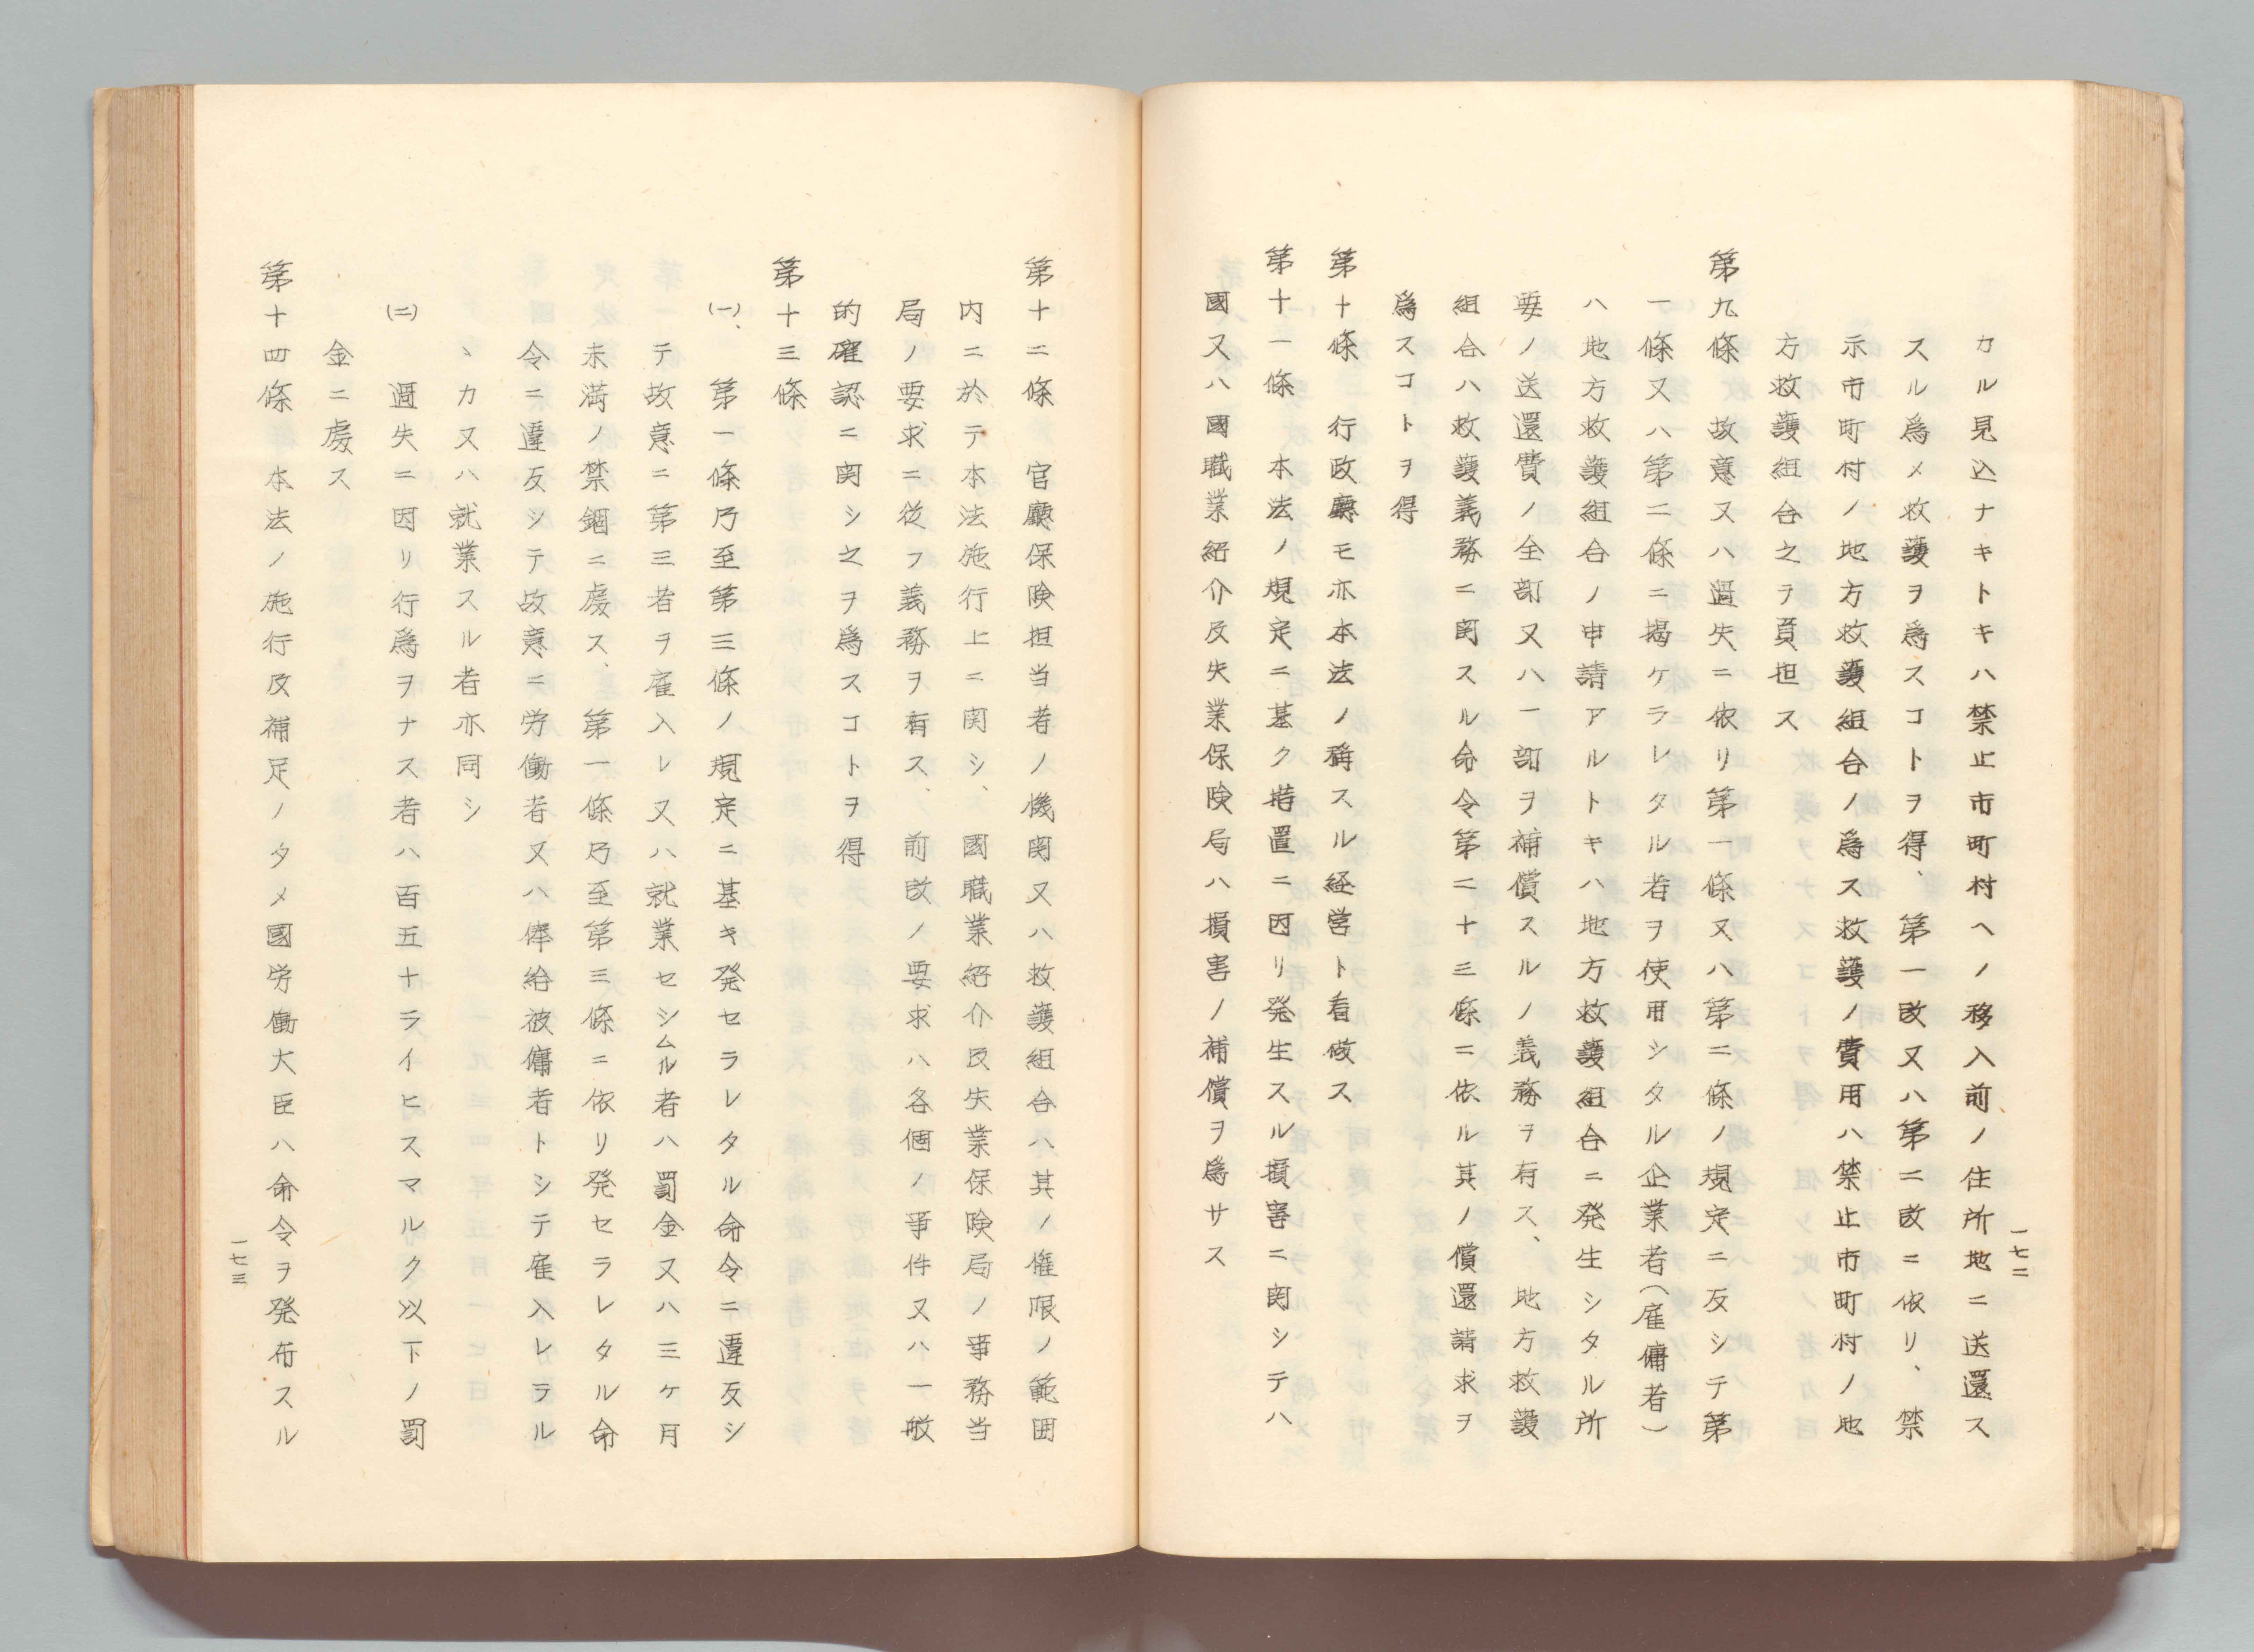 カル見込ナキトキハ禁止市町村ヘノ移入前ノ住所地ニ送還ス
スル爲メ救護ヲ爲スコトヲ得、第一改又ハ第二改ニ依リ、禁
示市町村ノ地方救護組合ノ爲ス救護ノ費用ハ禁止市町村ノ地
方救護組合之ヲ負担ス
第九條 故意又ハ過失ニ依リ第一條又ハ第二條ノ規定ニ反シテ第
一條又ハ第二條ニ掲ケラレタル者ヲ使用シタル企業者(雇傭者)
ハ地方救護組合ノ申請アルトキハ地方救護組合ニ発生シタル所
要ノ送還費ノ全部又ハ一部ヲ補償スルノ義務ヲ有ス、地方救護
組合ハ救護義務ニ関スル命令第二十三條ニ依ル其ノ償還請求ヲ
爲スコトヲ得
第十條 行政廳モ亦本法ノ稱スル経営ト看做ス
第十一條 本法ノ規定ニ基ク措置ニ因リ発生スル損害ニ関シテハ
國又ハ國職業紹介及失業保険局ハ損害ノ補償ヲ爲サス
一七二
第十二條 官廳保険担当者ノ機関又ハ救護組合ハ其ノ権限ノ範囲
内ニ於テ本法施行上ニ関シ、國職業紹介及失業保険局ノ事務当
局ノ要求ニ従フ義務ヲ有ス、前改ノ要求ハ各個ノ事件又ハ一般
的確認ニ関シ之ヲ爲スコトヲ得
第十三條
(一)、第一條乃至第三條ノ規定ニ基キ発セラレタル命令ニ違反シ
テ故意ニ第三者ヲ雇入レ又ハ就業セシムル者ハ罰金又ハ三ケ月
未満ノ禁錮ニ處ス、第一條乃至第三條ニ依リ発セラレタル命
令ニ違反シテ故意ニ労働者又ハ俸給被傭者トシテ雇入レラル
ヽカ又ハ就業スル者亦同シ
(二) 過失ニ因リ行爲ヲナス者ハ百五十ライヒスマルク以下ノ罰
金ニ處ス
第十四條 本法ノ施行及補足ノタメ國労働大臣ハ命令ヲ発布スル
一七三